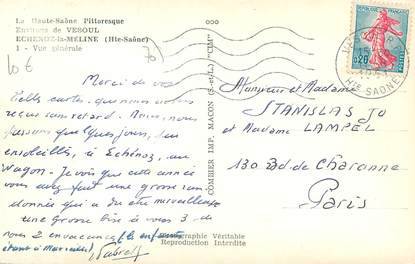 La Haute-Saône Pittoresque
Environs de VESOUL
ECHENOZ-la-MÉLINE (Hte-Saône)
1 - Vue générale
10 €
Merci de vos
belles cartes, que nous avons
reçues sans retard. Nous, nous
passons quelques jours, bien
ensoleillés, à Echénoz, au
Wagon. Je vois que cette année
vous avez fait une grosse ran-
donnée qui a du être merveilleuse
une Grosse bise à vous 3. de
nous 2 en vacances (les enfants
étant à Marseille)
COMBIER IMP. MACON (S.-et-L.) "CIM"
Photographie Véritable
Reproduction Interdite
0,25
Hte SAONE
Monsieur et Madame
STANISLAS Jo
et Madame LAMPEL
130 Bd de Charonne
Paris